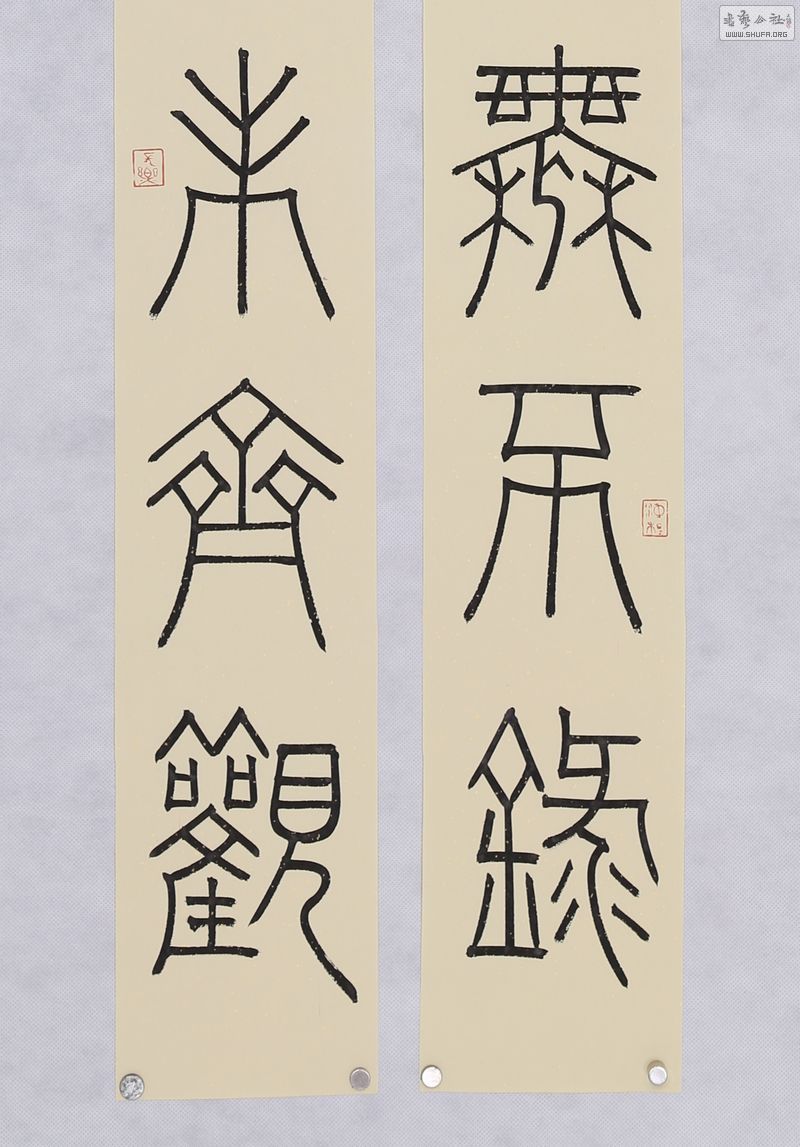 無不錄
未齊觀
書藝公社
WWW.SHUFA.ORG